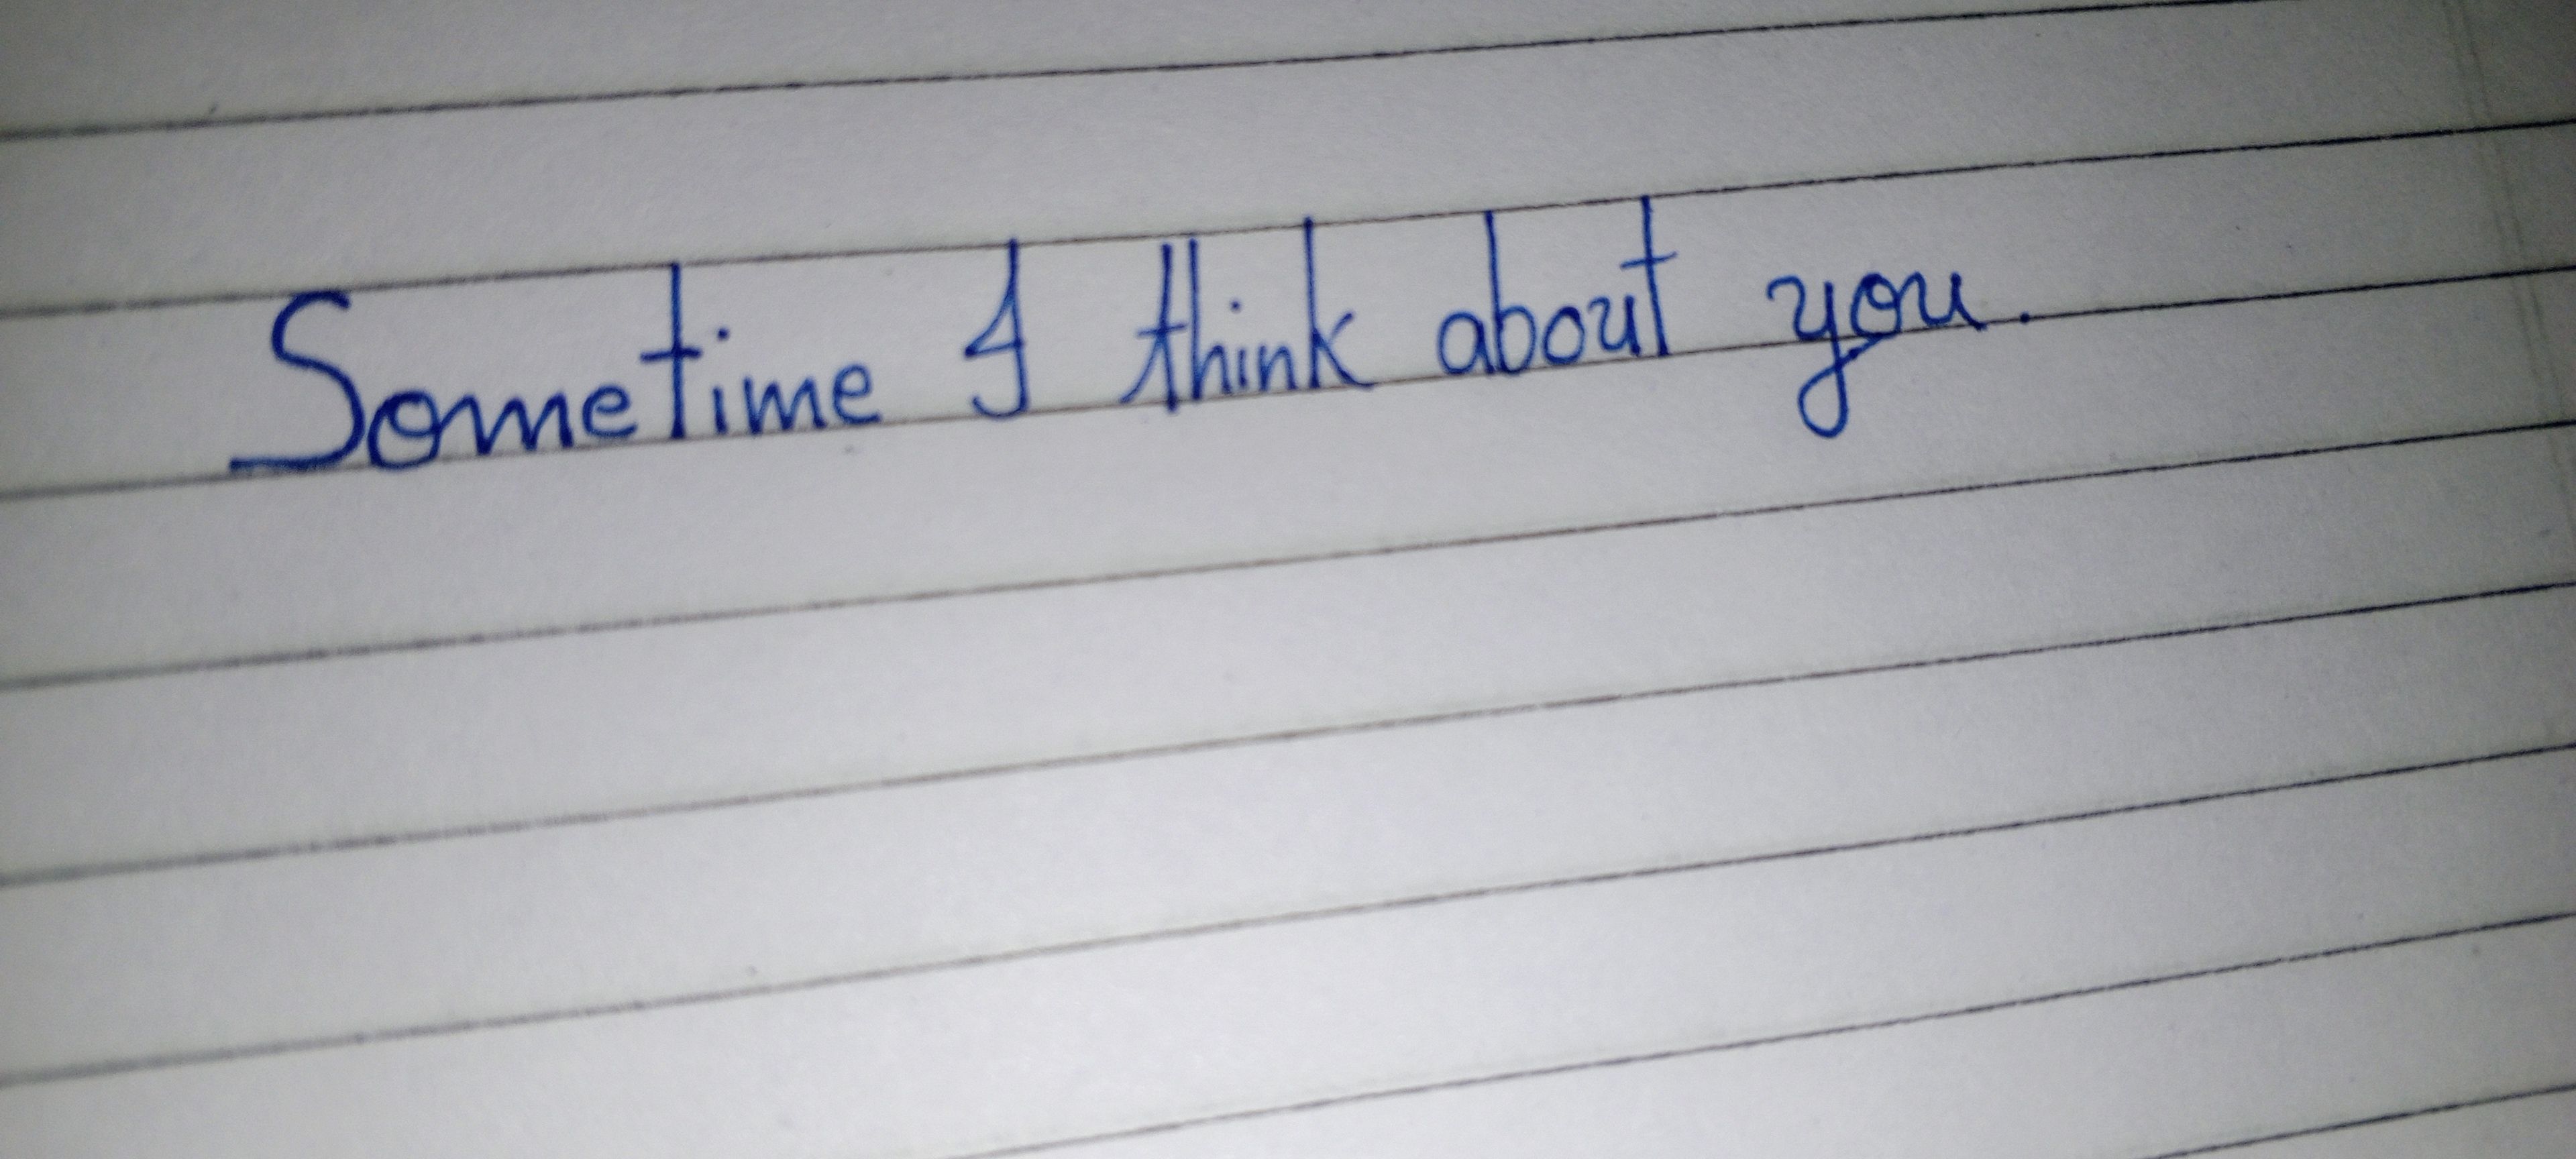 Sometime I think about you.